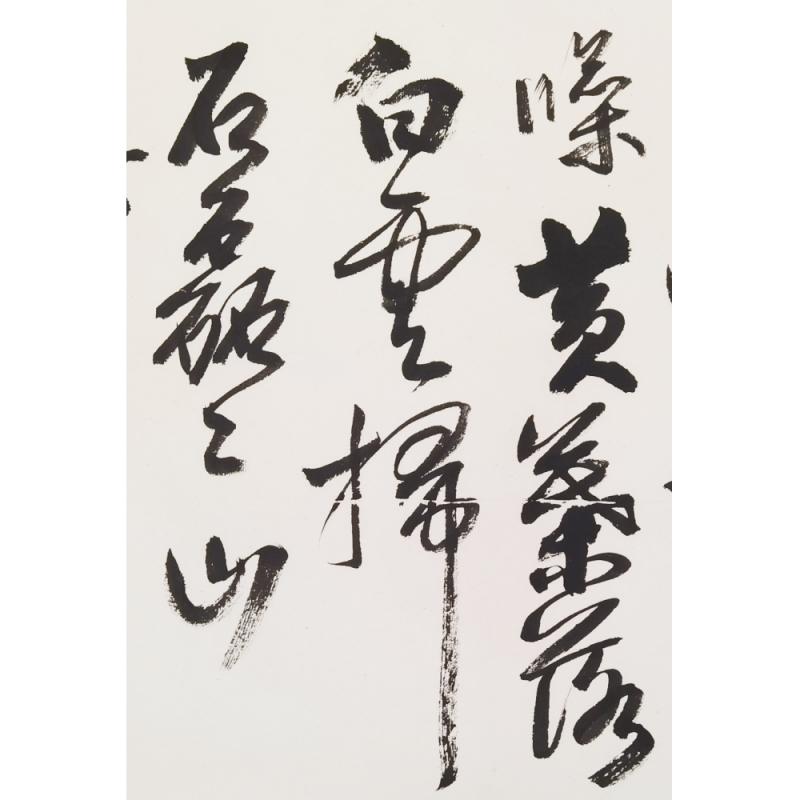 噪黄葉落
白雲掃
石磊〻山